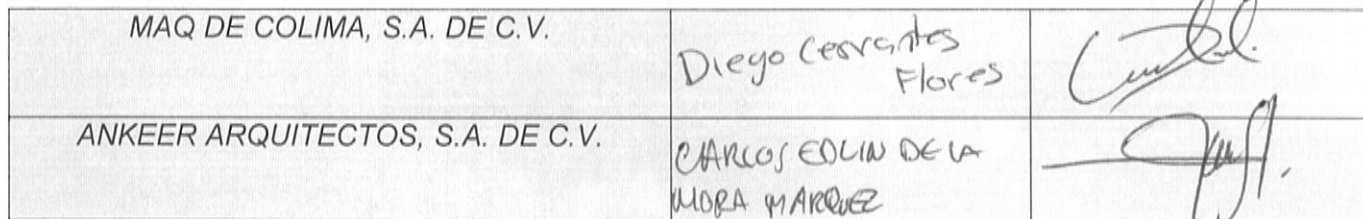 MAQ DE COLIMA, S.A. DE C.V.
Diego Cervantes
Flores
ANKEER ARQUITECTOS, S.A. DE C.V.
CARLOS EDLIN DE LA
MORA MARQUEZ